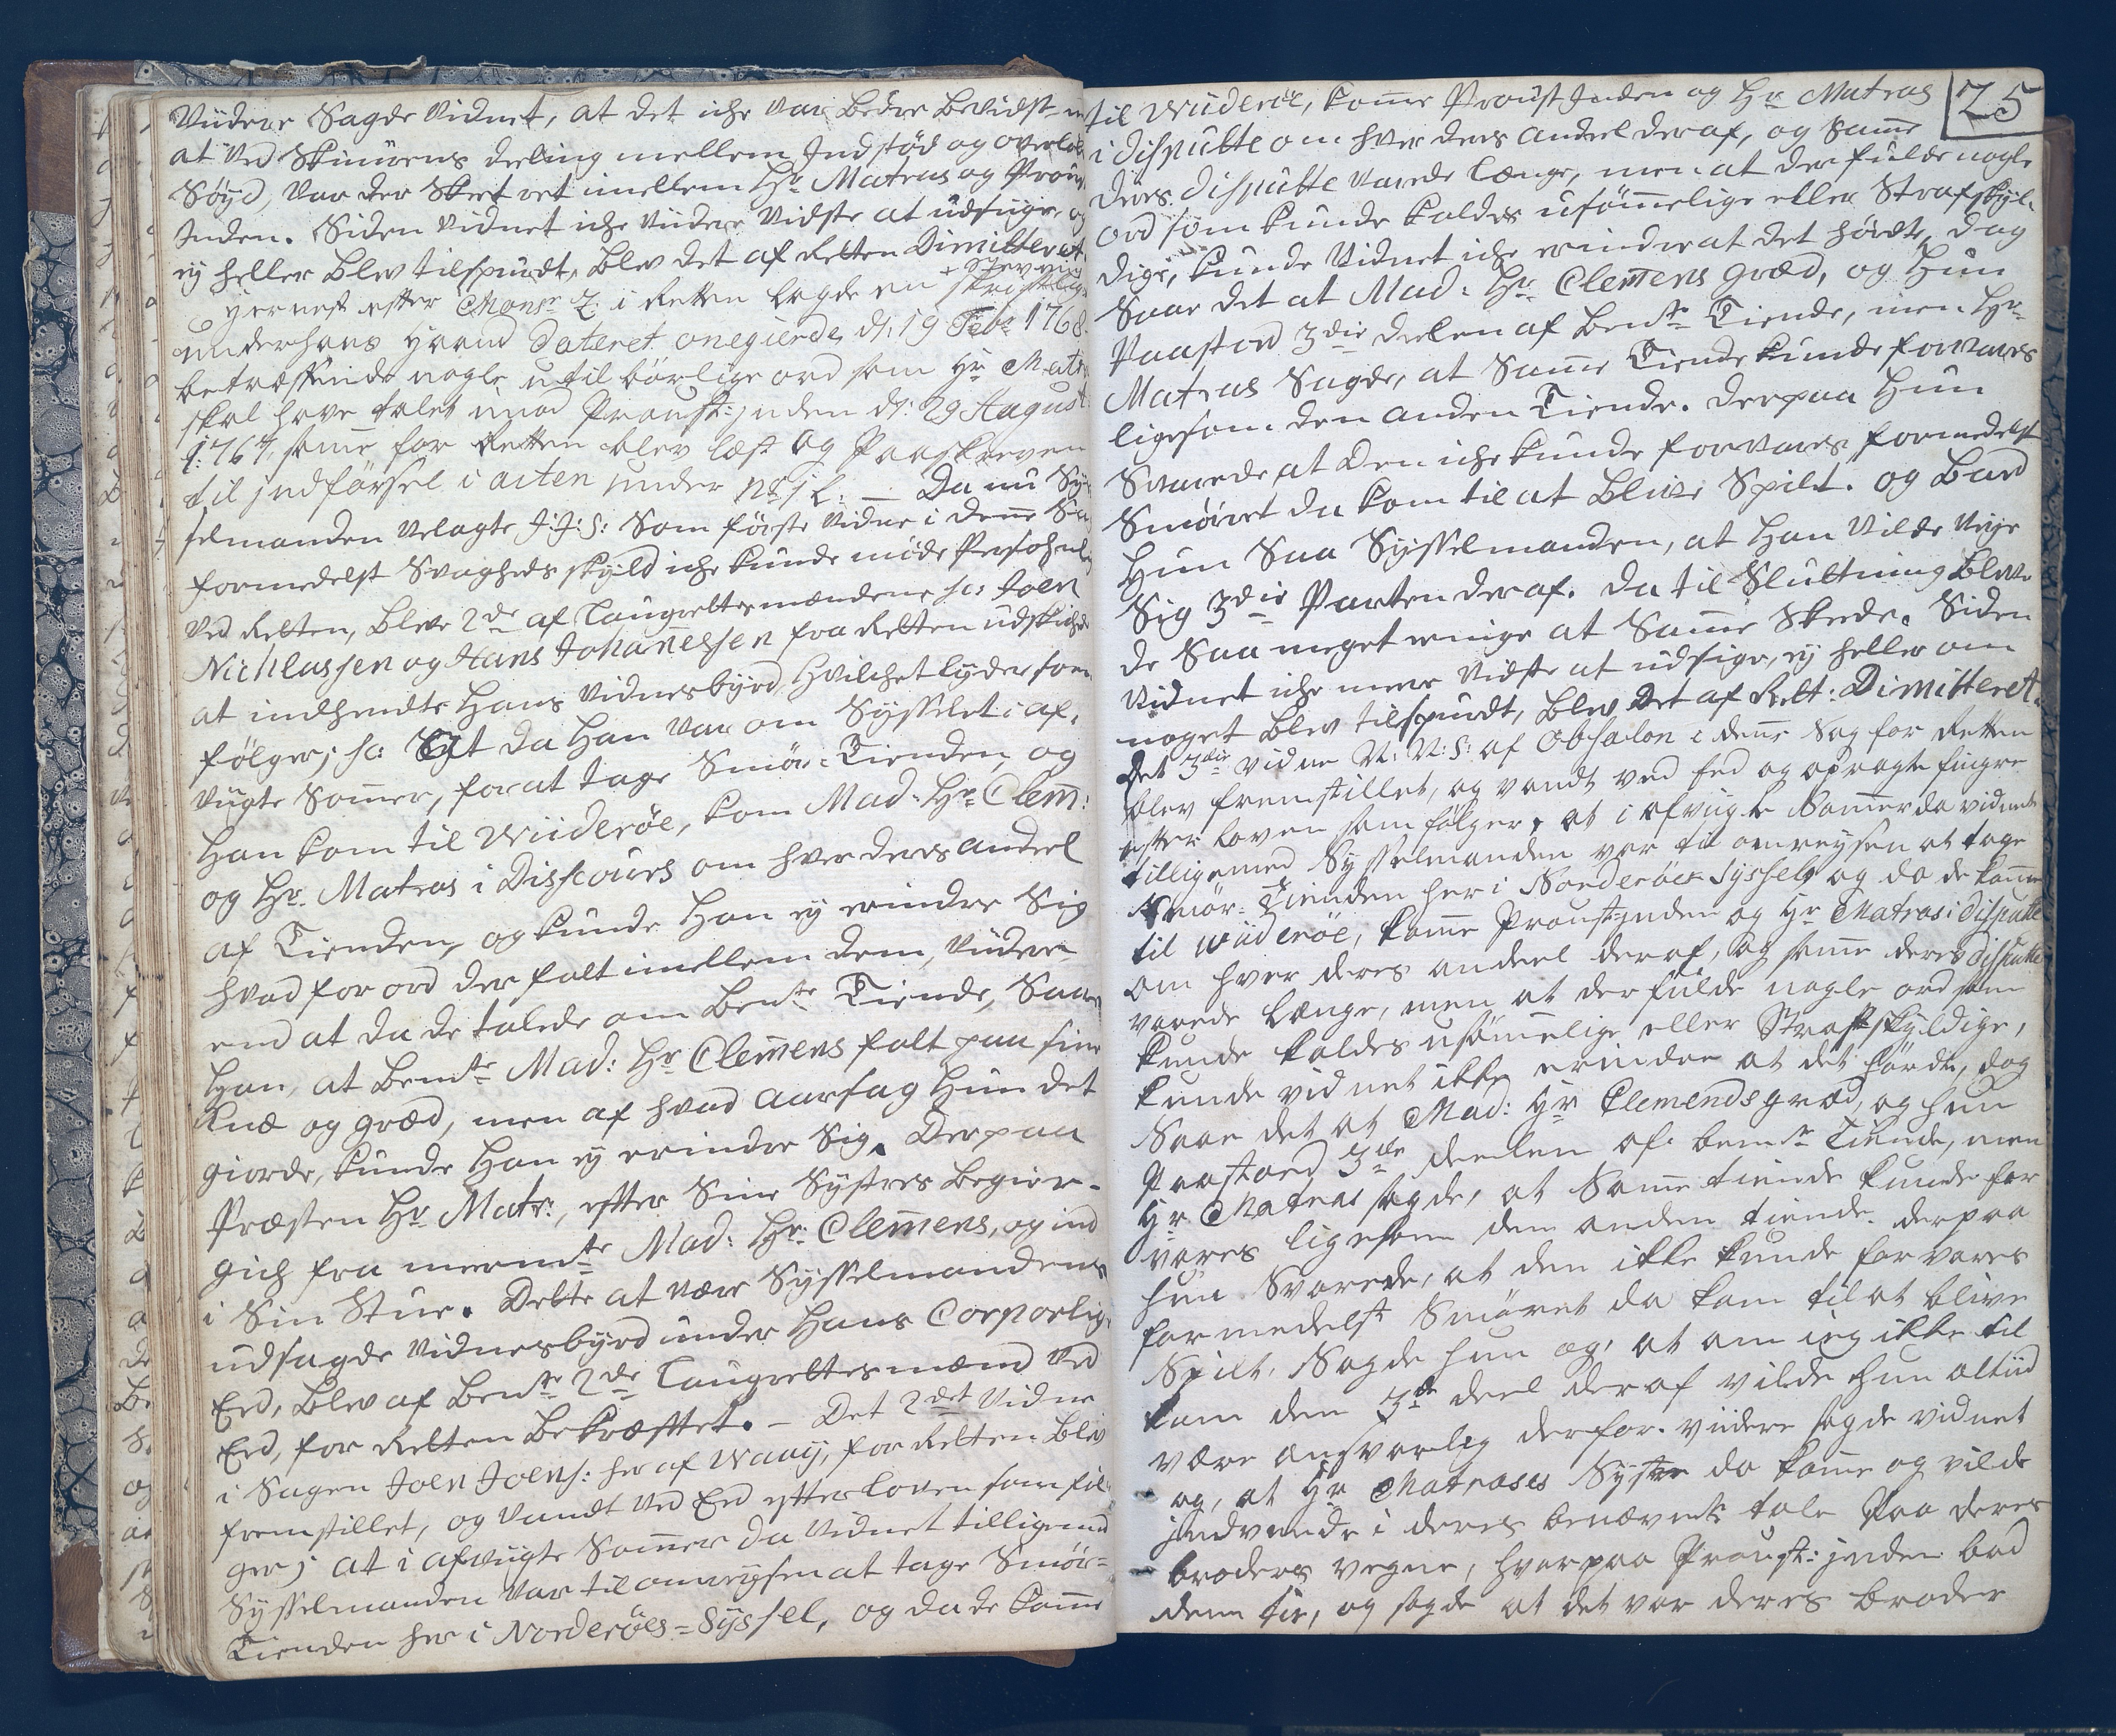 Viidere Sagde Vidnet, at det iche var bedre bevidst
at ved Skinnens deeling mellem Indstød og overlods
Søyd, var der Skeet ret imellem Hr Matras og Proust-
Inden. Siden Vidnet iche viidere vidste at udsige, og
ej heller blev tilspurdt, blev det af Retten Dimitteret
hernest efter Monsr Z. i Retten lagde en skriftlig
+ Stevning
under hans Haand dateret onegierde, d: 19 Febr 1768.
betræffende nogle utilbørlige ord som Hr Matr
skal have talet imod Proust-jnden d: 29 August
1767, same for Retten blev læst og Paaskreven
til jndførsel i acten under No 1 L: — Da nu Sys-
selmanden velagte J: J: S: som første Vidne i dene Sag
formedelst Svagheds skyld iche kunde møde Persohnlig
ved Retten, bleve 2de af Laugrettesmændene sc: Joen
Nichlassen og Hans Johanessen fra Retten udskiched
at indhendte hans vidnesbyrd, hvilchet lyder som
følger; sc: At da han var om Sysselet i af-
vigte Somer, for at tage Smør-Tienden, og
han kom til Wiiderøe, kom Mad: Hr Clem:
og Hr Matras i Discours om hver deres andeel
af Tienden, og kunde han ej erindre Sig
hvad for ord der falt imellem dem, viidere
end at da de talede om bemte Tiende, Saae
han, at bemte Mad: Hr Clemens falt paa sine
Knæ og græd, men af hvad aarsag hun det
giorde, kunde han ej erindre Sig. Derpaa
Præsten Hr Matr:, efter Sine Systres begier-
gich fra meermte Mad: Hr Clemens, og ind
i Sin Stue. Dette at være Sysselmandens
udsagde vidnesbyrd under hans Corporlige
Eed, blev af bemte 2de Laugrettesmænd ved
Eed, for Retten bekræftet. – Det 2det Vidne
i Sagen Joen Joens: her af Waaij, for Retten blev
fremstillet, og vandt ved Eed efter loven somføl-
ger; at i afvigte Somer da vidnet tilligemed
Sysselmanden var til omreysen at tage Smør-
Tienden her i Norderøes-Syssel, og da de kome
25
til Wiiderøe, kome Proust Inden og Hr Matras
i disputte om hver ders andeel deraf, og Same
ders disputte varede længe, men at der fulde nogle
ord som kunde kaldes usømelige eller Strafskyl-
dige, kunde vidnet iche erindre at det hørdte, dog
Saae det at Mad: Hr Clemens græd, og hun
Paastod 3die deelen af bemte Tiende, men Hr
Matras Sagde, at Same Tiende kunde forvares
ligesom den anden Tiende. Derpaa hun
Svarede, at den iche kunde forvares formedelst
Smøret da kom til at blive Spilt. og bad
hun Saa Sysselmanden, at han vilde veye
Sig 3die Parten deraf. Da til Sluttning bleve
de Saa meget enige at Same Skede. Siden
vidnet iche mere vidste at udsige, ej heller om
noget blev tilspurdt, blev det af Rett: Dimitteret.
Det 3die vidne N: N: S: af Obsalon i dene Sag for Retten
blev fremstillet, og vandt ved Eed og opragte fingre
efter loven som følger, at i afvigte Somer da vidnet
tilligemed Sysselmanden var til omreysen at tage
Smør-Tienden her i Norderöes Syssel, og da de kome
til wiiderøe, kome Proust-jnden og Hr Matras i disputte
om hver deres andeel deraf, og same deres disputte
varede længe, men at der fulde nogle ord som
kunde kaldes usømelige eller Strafskyldige,
kunde vidnet ikke erindre at det hørdte, dog
Saae det at Mad: Hr Clemends græd, og hun
Paastoed 3die deelen af bemte Tiende, men
Hr Matras sagde, at Same tiende kunde for-
vares ligesom den anden tiende. derpaa
hun Svarede, at den ikke kunde forvares
formedelst Smøret da kom til at blive
Spilt, Sagde hun og, at om ieg ikke til
kom den 3de deel deraf vilde hun altiid
være ansvarlig derfor. viidere sagde vidnet
og, at Hr Matrases Systre da kome og vilde
jndvende i deres benævnte tale Paa deres
broders vegne, hvorpaa Proust-jnden bad
dem tie, og sagde at det var deres broder